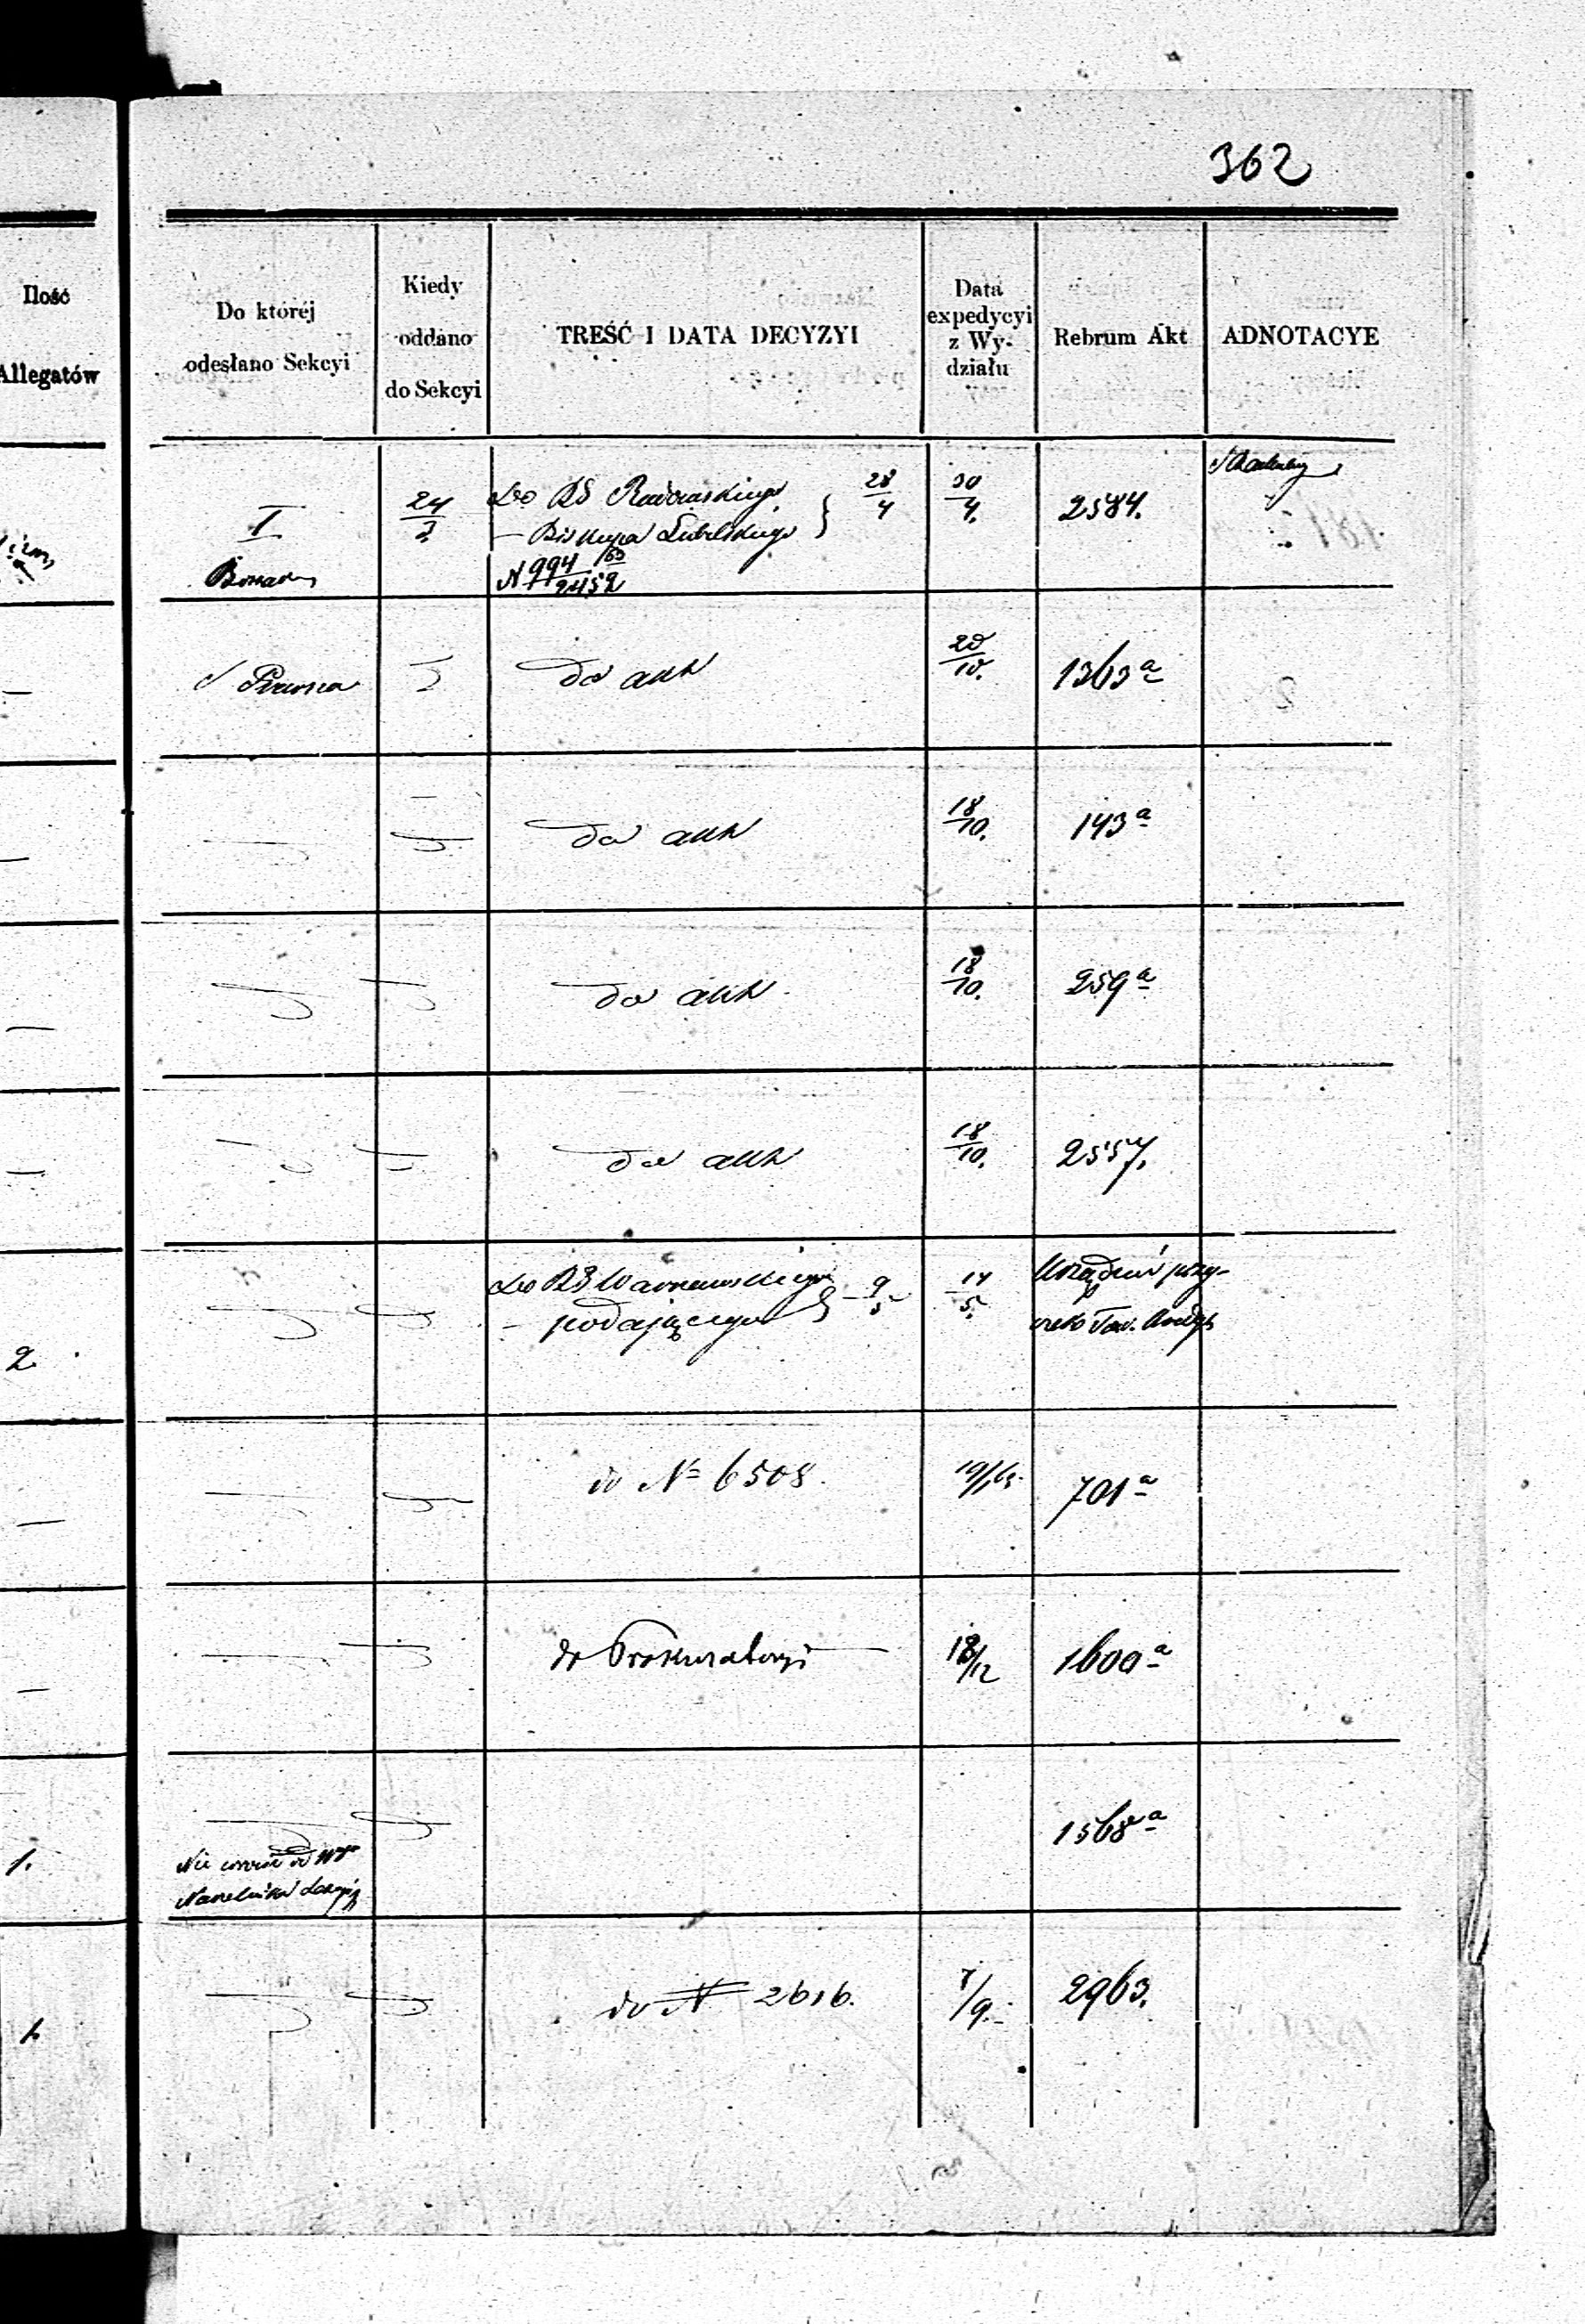 362
Ilość
Allegatów
Do której
odesłano Sekcyi
Kiedy
oddano
do Sekcyi
TREŚĆ I DATA DECYZYI
Data
expedycyi
z Wy-
działu
Rebrum Akt
ADNOTACYE
I
24/3
Do RG Radomskiego
— Biskupa Lubelskiego } 28/4
N 994/2452 /63
30/4.
2584.
Pierwsza
do akt
20/10.
1363 a
do akt
18/10.
143 a
do akt
18/10.
259 a
do akt
18/10.
2557.
2.
Do RG Warszawskiego
— podającego } 9/5
14/5.
do № 6508.
701 a
do Prokuratoryi
18/12
1600 a
1.
1568 a
Naczelnika Sekcyi
1.
do N 2616.
7/9.
2963.